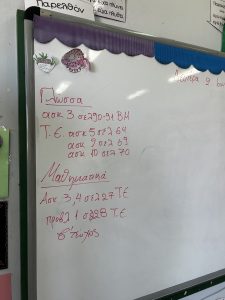 Παρελθόν
Δευτέρα 9
Γλώσσα
ασκ 3 σελ 90-91 ΒΜ
Τ.Ε. ασκ 5 σελ 64
ασκ 9 σελ 69
ασκ 10 σελ 70
Μαθηματικά
Ασκ 3,4 σελ 27 Τ.Ε
προβλ 1 σελ 28 Τ.Ε
β' τεύχος